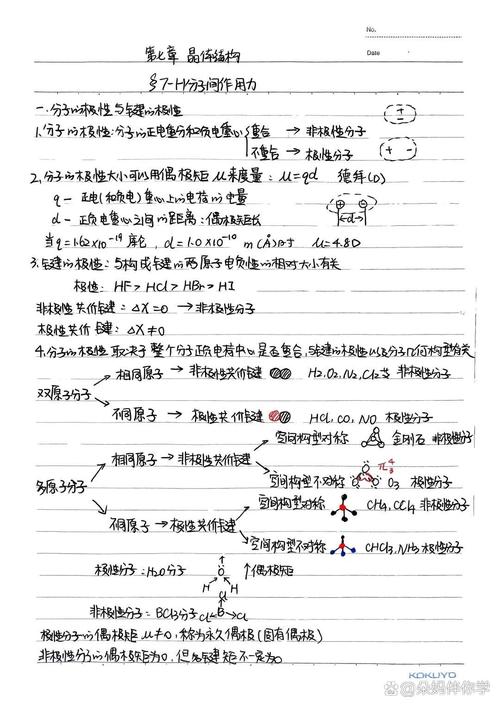 No.
Date
第七章 晶体结构
§7-1 分子间作用力
一.分子的极性与键的极性
1.分子的极性:分子的正电重心和负电重心 重合 → 非极性分子
不重合 → 极性分子
2.分子的极性大小可以用偶极矩μ来度量:μ=qd 德拜(D)
q - 正电(和负电)重心上的电荷的电量
d - 正负电重心之间的距离:偶极矩长
←d→
当q=1.62×10⁻¹⁹库仑,d=1.0×10⁻¹⁰ m(Å)时 μ=4.8D
3.键的极性:与构成键的两原子电负性的相对大小有关
极性:HF > HCl > HBr > HI
非极性共价键:ΔX=0 → 非极性分子
极性共价键:ΔX≠0
4.分子的极性 取决于 整个分子正负电荷中心是否重合,与键的极性以及分子几何构型有关
双原子分子
相同原子 → 非极性共价键 H₂.O₂.N₂.Cl₂等 非极性分子
不同原子 → 极性共价键 HCl,CO,NO 极性分子
多原子分子
相同原子 → 非极性共价键
空间构型对称 金刚石 非极性分子
空间构型不对称 O₃ 极性分子
不同原子 → 极性共价键
空间构型对称 CH₄,CCl₄ 非极性分子
空间构型不对称 CHCl₃,NH₃ 极性分子
极性分子:H₂O分子 H O H ↑偶极矩
非极性分子:BCl₃分子 Cl Cl B Cl
极性分子的偶极矩μ≠0,称为永久偶极(固有偶极)
非极性分子的偶极矩为0,但各键矩不一定为0
KOKUYO
@朵妈伴你学